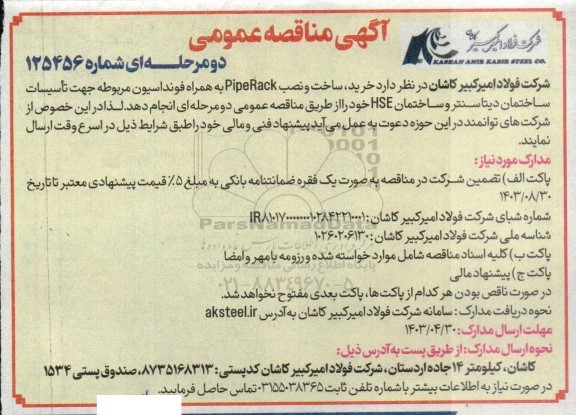 شرکت فولاد امیرکبیر کاشان
KASHAN AMIR KABIR STEEL CO.
آگهی مناقصه عمومی
دو مرحله ای شماره ۱۲۵۴۵۶
شرکت فولاد امیرکبیر کاشان در نظر دارد خرید، ساخت و نصب PipeRack به همراه فونداسیون مربوطه جهت تأسیسات
ساختمان دیتاسنتر و ساختمان HSE خود را از طریق مناقصه عمومی دو مرحله ای انجام دهد. لذا در این خصوص از
شرکت های توانمند در این حوزه دعوت به عمل می آید پیشنهاد فنی و مالی خود را طبق شرایط ذیل در اسرع وقت ارسال
نمایند.
مدارک مورد نیاز:
پاکت الف) تضمین شرکت در مناقصه به صورت یک فقره ضمانتنامه بانکی به مبلغ ۵٪ قیمت پیشنهادی معتبر تا تاریخ
۱۴۰۳/۰۸/۳۰
شماره شبای شرکت فولاد امیرکبیر کاشان:
شناسه ملی شرکت فولاد امیرکبیر کاشان: ۱۰۲۶۰۲۰۶۱۳۰
پاکت ب) کلیه اسناد مناقصه شامل موارد خواسته شده و رزومه با مهر و امضا
پاکت ج) پیشنهاد مالی
در صورت ناقص بودن هر کدام از پاکت ها، پاکت بعدی مفتوح نخواهد شد.
نحوه دریافت مدارک: سامانه شرکت فولاد امیرکبیر کاشان به آدرس aksteel.ir
مهلت ارسال مدارک: ۱۴۰۳/۰۴/۳۰
نحوه ارسال مدارک: از طریق پست به آدرس ذیل:
کاشان، کیلومتر ۱۴ جاده اردستان، شرکت فولاد امیرکبیر کاشان کدپستی: ۸۷۳۵۱۶۸۳۱۳، صندوق پستی ۱۵۳۴
در صورت نیاز به اطلاعات بیشتر با شماره تلفن ثابت ۰۳۱۵۵۰۳۸۳۶۵ تماس حاصل فرمایید.
ParsNamadData
پایگاه اطلاع رسانی مناقصه و مزایده
۰۲۱-۸۸۳۴۹۶۷۰-۵